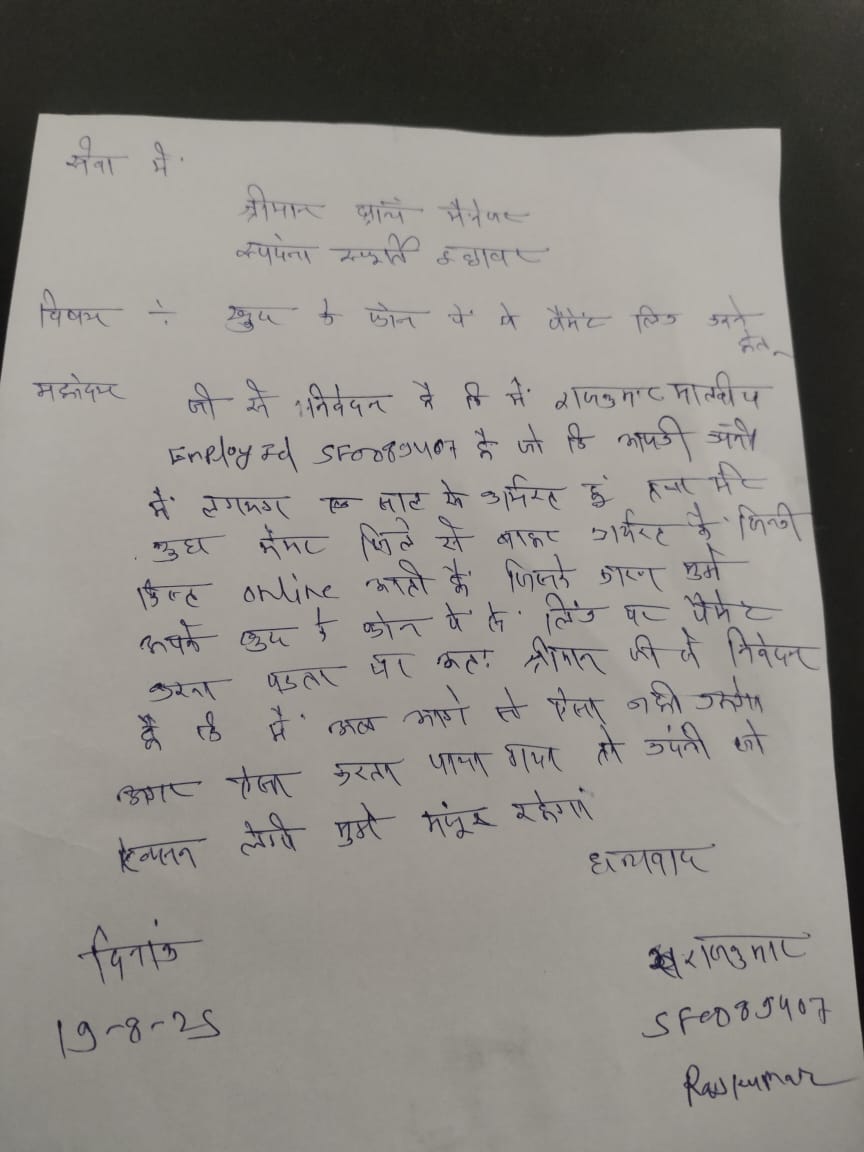 सेवा में
श्रीमान ब्रांच मैनेजर
स्पंदना स्फूर्ति
विषय ÷ खुद के फोन पे से पैमेंट लिंक करने
हेतू
महोदय जी से निवेदन है कि में राजकुमार मालवीय
Employ Id SF0089407 है जो कि आपकी कंपनी
में लगभग एक साल से कार्यरत हूं तथा मेरे
कुछ मेंबर जिले से बाहर कार्यरत है जिनकी
किस्त online आती है जिसके कारण मुझे
अपने खुद के फोन पे से लिंक पर पैमेंट
करना पडता था अतः श्रीमान जी से निवेदन
है कि में अब आगे से ऐसा नही करूंगा
अगर ऐसा करता पाया गया तो कंपनी जो
लेगी मुझे मंजूर रहेगां
धन्यवाद
दिनांक
19-8-25
राजकुमार
SF0089407
Rajkumar